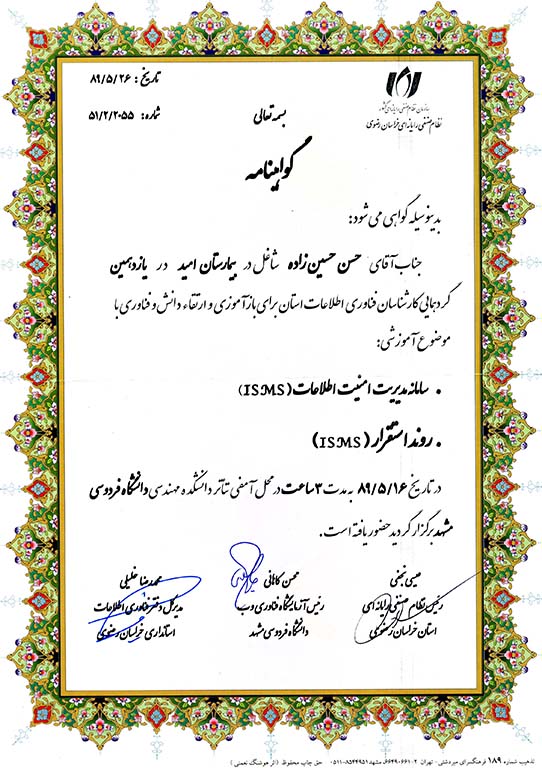 تاریخ: ۸۹/۵/۲۶
سازمان نظام صنفی رایانه‌ای کشور
نظام صنفی رایانه‌ای خراسان رضوی
شماره: ۵۱/۲/۲۰۵۵
بسمه تعالی
گواهینامه
بدینوسیله گواهی می شود:
جناب آقای حسن حسین زاده شاغل در بیمارستان امید در یازدهمین
گردهمایی کارشناسان فناوری اطلاعات استان برای بازآموزی و ارتقاء دانش و فناوری با
موضوع آموزشی:
• سامانه مدیریت امنیت اطلاعات (ISMS)
• روند استقرار (ISMS)
در تاریخ ۸۹/۵/۱۶ به مدت ۳ ساعت در محل آمفی تئاتر دانشکده مهندسی دانشگاه فردوسی
مشهد برگزار گردید حضور یافته است.
محسن کاهانی
رئیس آزمایشگاه فناوری وب
دانشگاه فردوسی مشهد
رئیس نظام صنفی رایانه ای
استان خراسان رضوی
محمدرضا خلیلی
مدیرکل دفتر فناوری اطلاعات
استانداری خراسان رضوی
تذهیب شماره ۱۸۹ فرهنگسرای میردشتی - تهران ۶۶۴۹۰۶۶۱-۲ مشهد ۸۵۴۴۹۵۱-۰۵۱۱ حق چاپ محفوظ (اثر هوشنگ نعمتی)